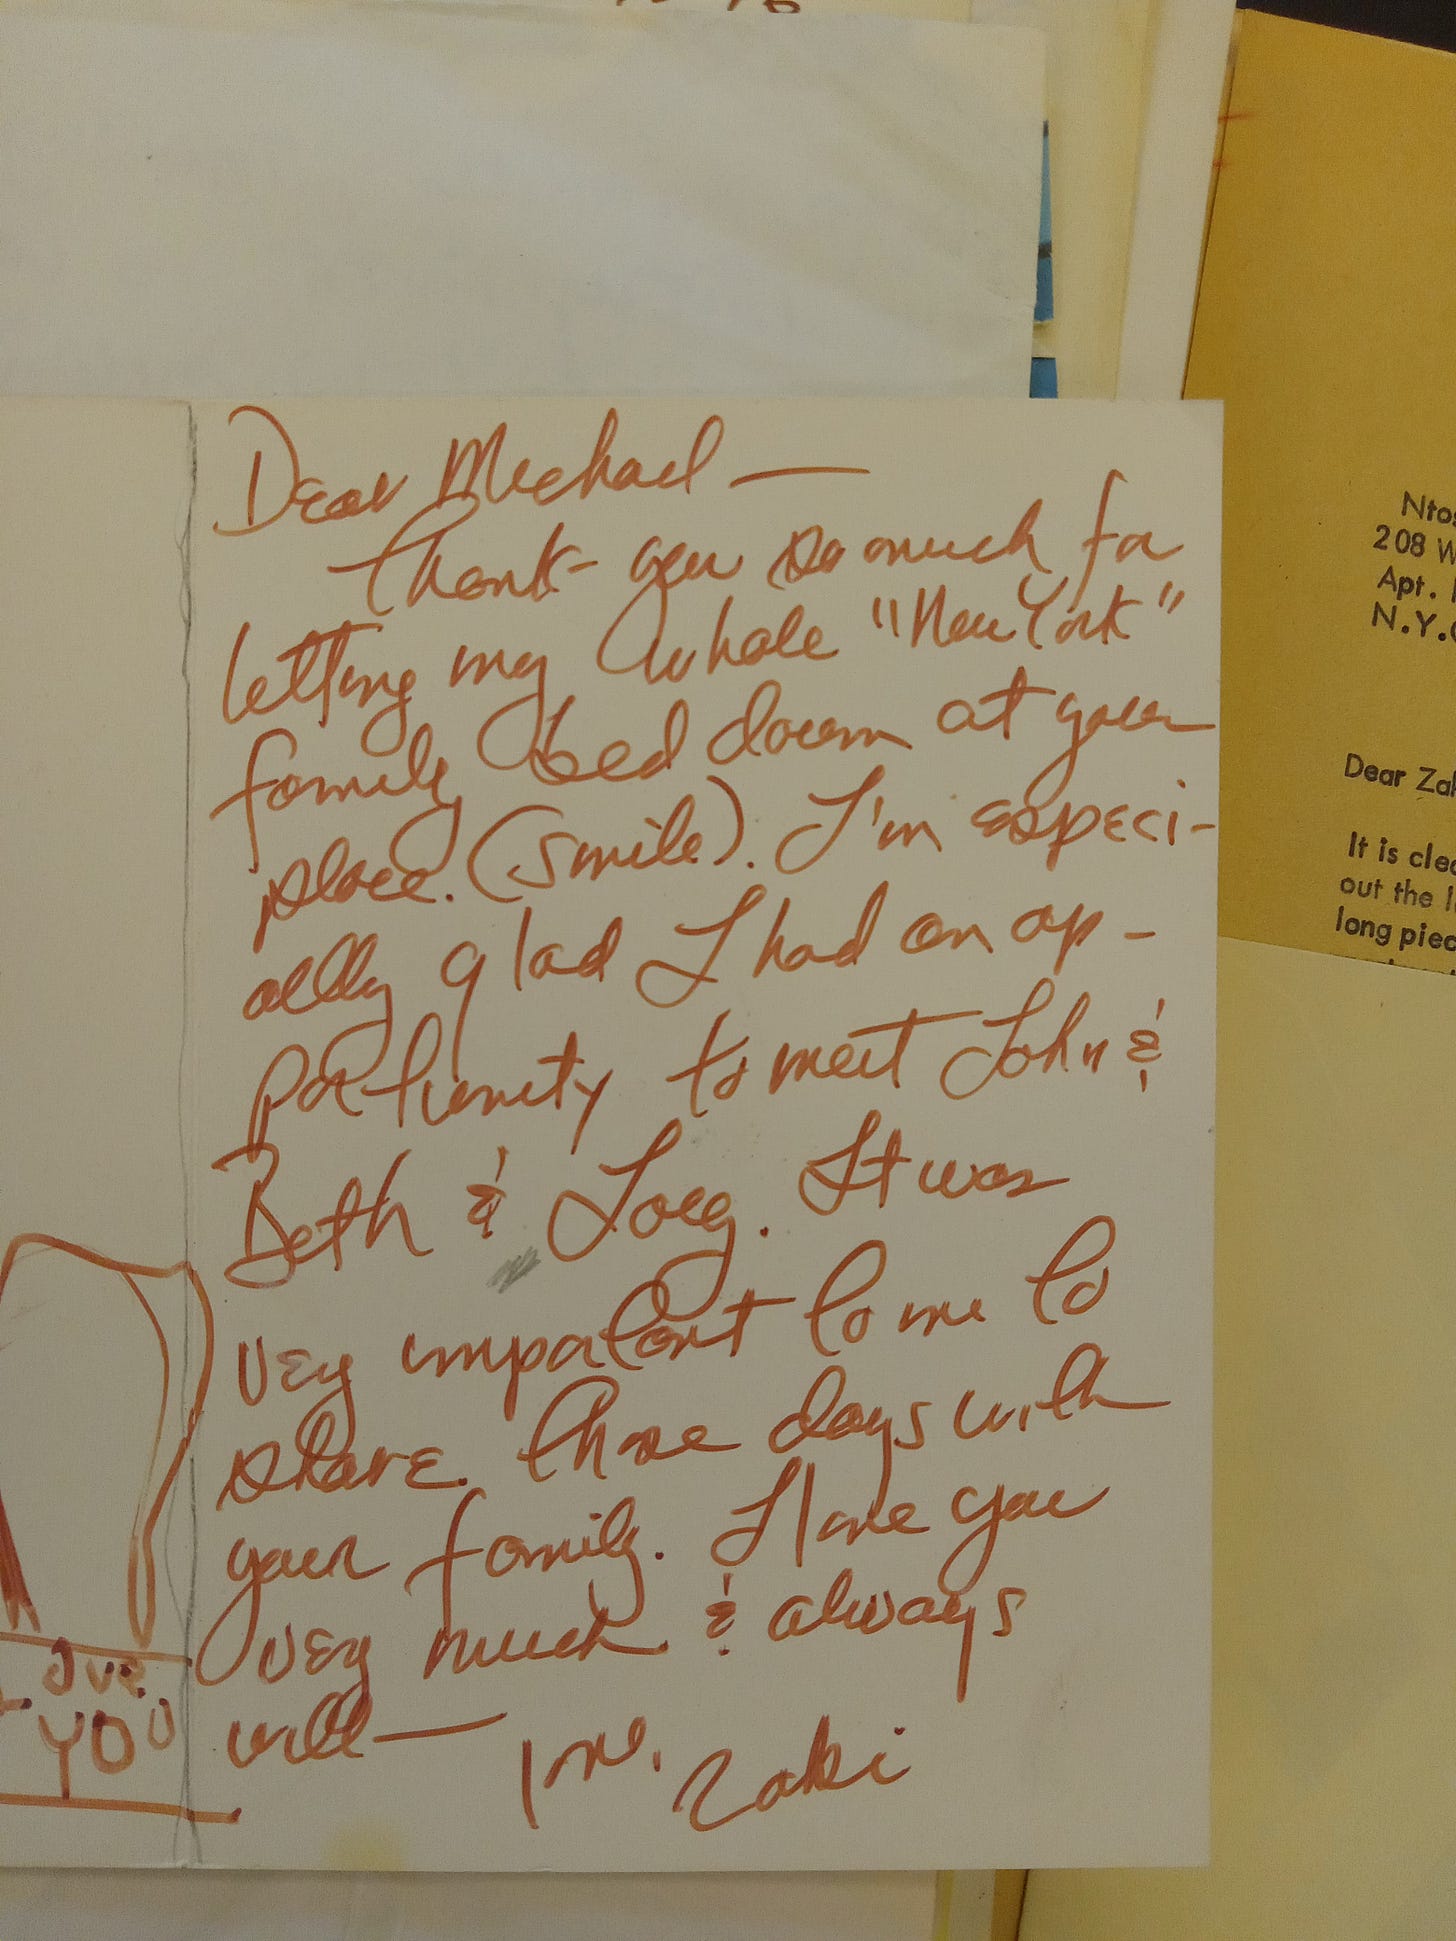 Dear Michael —
Thank you so much for
letting my whole "New York"
family bed down at your
place. (smile). I'm especi-
ally glad I had an op-
portunity to meet John &
Beth & Joey. It was
very important to me to
share those days with
your family. I love you
very much & always
will — love,
Zaki
ove
YOU
208 W
Apt.
Dear Zak
It is clea
out the l
long piec